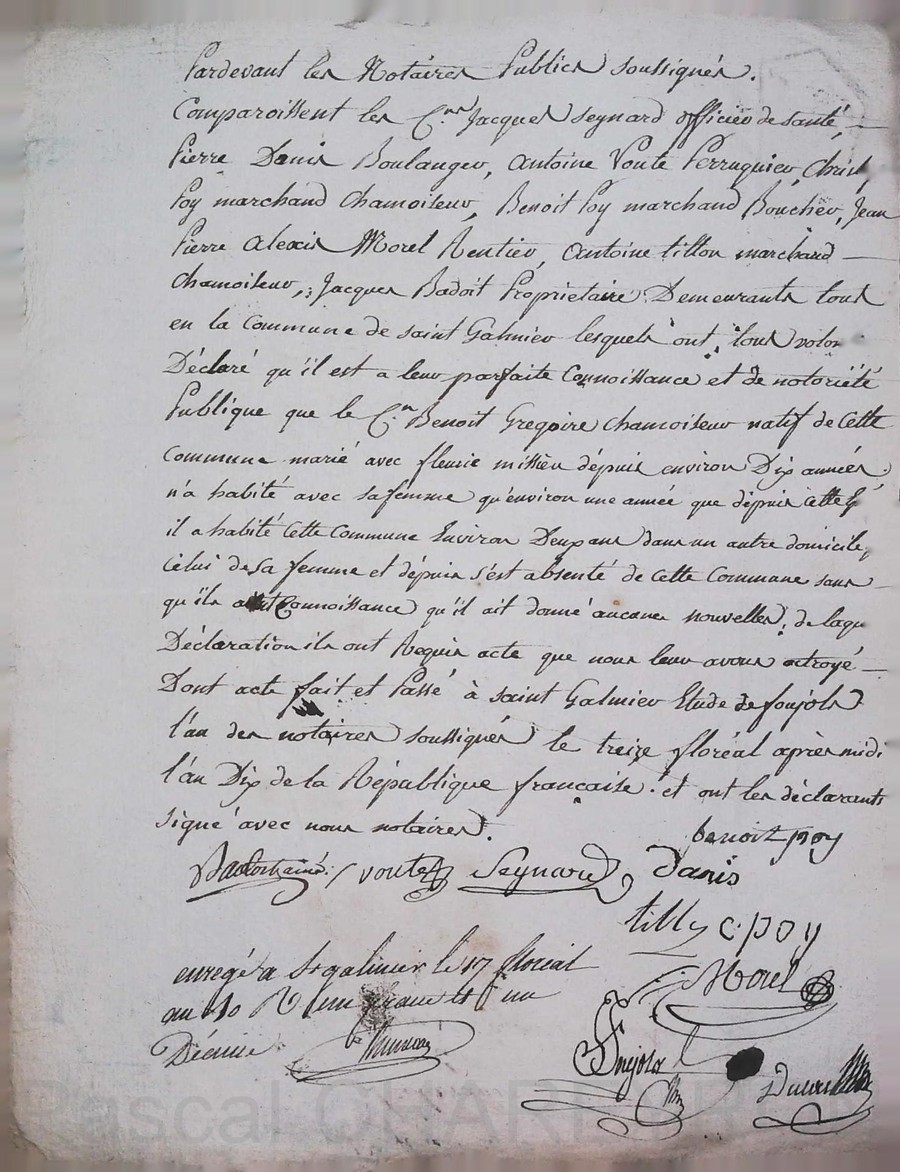 Pardevant les Notaires Publics soussignés.
Comparoissent les C.ens Jacques Seynard officier de santé,
Pierre Danis Boulanger, Antoine Voute Perruquier, Christ
Poy marchand Chamoiseur, Benoit Poy marchand Boucher, Jean
Pierre Alexis Morel Rentier, Antoine tillon marchand
Chamoiseur, Jacques Badoit Proprietaire Demeurants tous
en la Commune de saint Galmier lesquels ont tous volon
Déclaré qu'il est a leur parfaite Connoissance et de notoriété
Publique que le C.en Benoit Gregoire Chamoiseur natif de Cette
Commune marié avec fleurie missieu dépuis environ Dix années
n'a habité avec sa femme qu'environ une année que dépuis Cette
il a habité Cette Commune Environ Deux ans dans un autre domicile,
Celui de sa femme et dépuis s'est absenté de Cette Commune sans
qu'ils Connoissance qu'il ait donné aucunes nouvelles, de laqu
Déclaration ils ont Requis acte que nous leur avons octroyé
Dont acte fait et Passé à saint Galmier Etude de foujols
l'un des notaires soussignés le treize floréal après midi
l'an Dix de la République francaise. et ont les déclarants
signé avec nous notaires.
benoit poy
voute Seynard danis
tillon c. poy
Morel
enregé a St galmier le 17 floréal
an 10 R un franc et un
Décime
Foujols